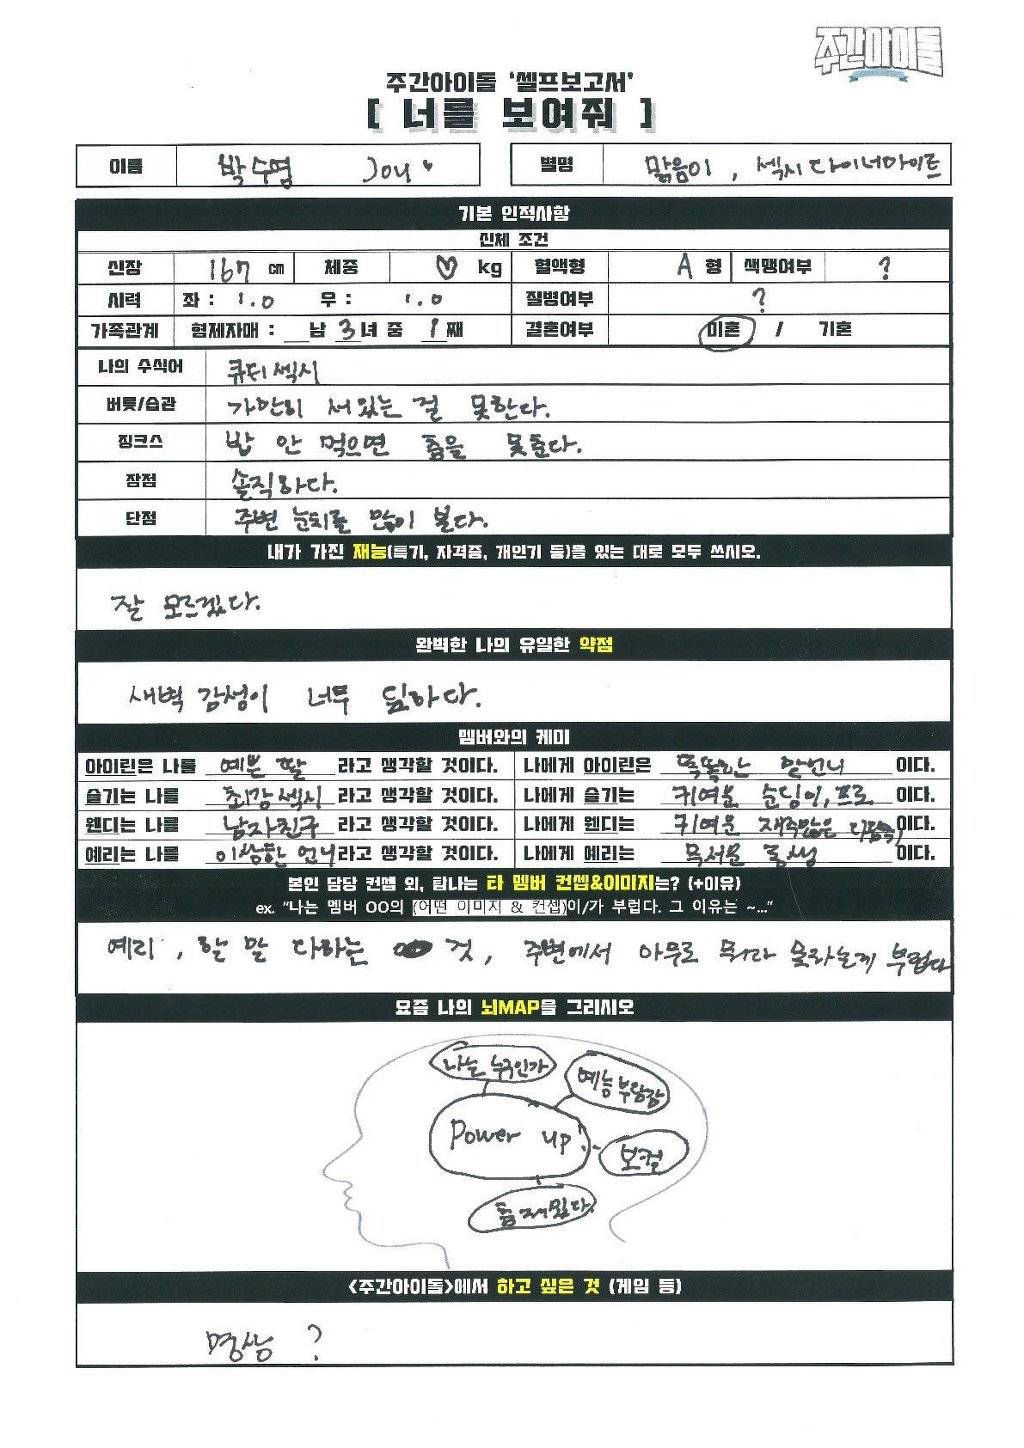 주간아이돌
주간아이돌 '셀프보고서'
[ 너를 보여줘 ]
이름 박수영 Joy ♥ 별명 맑음이, 섹시다이너마이트
기본 인적사항
신체 조건
신장 167 cm 체중 ♡ kg 혈액형 A 형 색맹여부 ?
시력 좌 : 1.0 우 : 1.0 질병여부 ?
가족관계 형제자매 : __ 남 3 녀 중 1 째 결혼여부 미혼 / 기혼
나의 수식어 큐티섹시
버릇/습관 가만히 서있는 걸 못한다.
징크스 밥 안 먹으면 춤을 못춘다.
장점 솔직하다.
단점 주변 눈치를 많이 본다.
내가 가진 재능(특기, 자격증, 개인기 등)을 있는 대로 모두 쓰시오.
잘 모르겠다.
완벽한 나의 유일한 약점
새벽 감성이 너무 딥하다.
멤버와의 케미
아이린은 나를 예쁜 딸 라고 생각할 것이다. 나에게 아이린은 똑똑한 맏언니 이다.
슬기는 나를 최강섹시 라고 생각할 것이다. 나에게 슬기는 귀여운 순딩이, 프로 이다.
웬디는 나를 남자친구 라고 생각할 것이다. 나에게 웬디는 귀여운 재주많은 이다.
예리는 나를 이상한 언니 라고 생각할 것이다. 나에게 예리는 무서운 동생 이다.
본인 담당 컨셉 외, 탐나는 타 멤버 컨셉&이미지는? (+이유)
ex. "나는 멤버 OO의 (어떤 이미지 & 컨셉)이/가 부럽다. 그 이유는 ~..."
예리, 할 말 다하는 것, 주변에서 아무도 뭐라 못하는게 부럽다
요즘 나의 뇌MAP을 그리시오
나는 누구인가
예능 부담감
Power up!
보컬
춤 재밌다.
<주간아이돌>에서 하고 싶은 것 (게임 등)
명상 ?